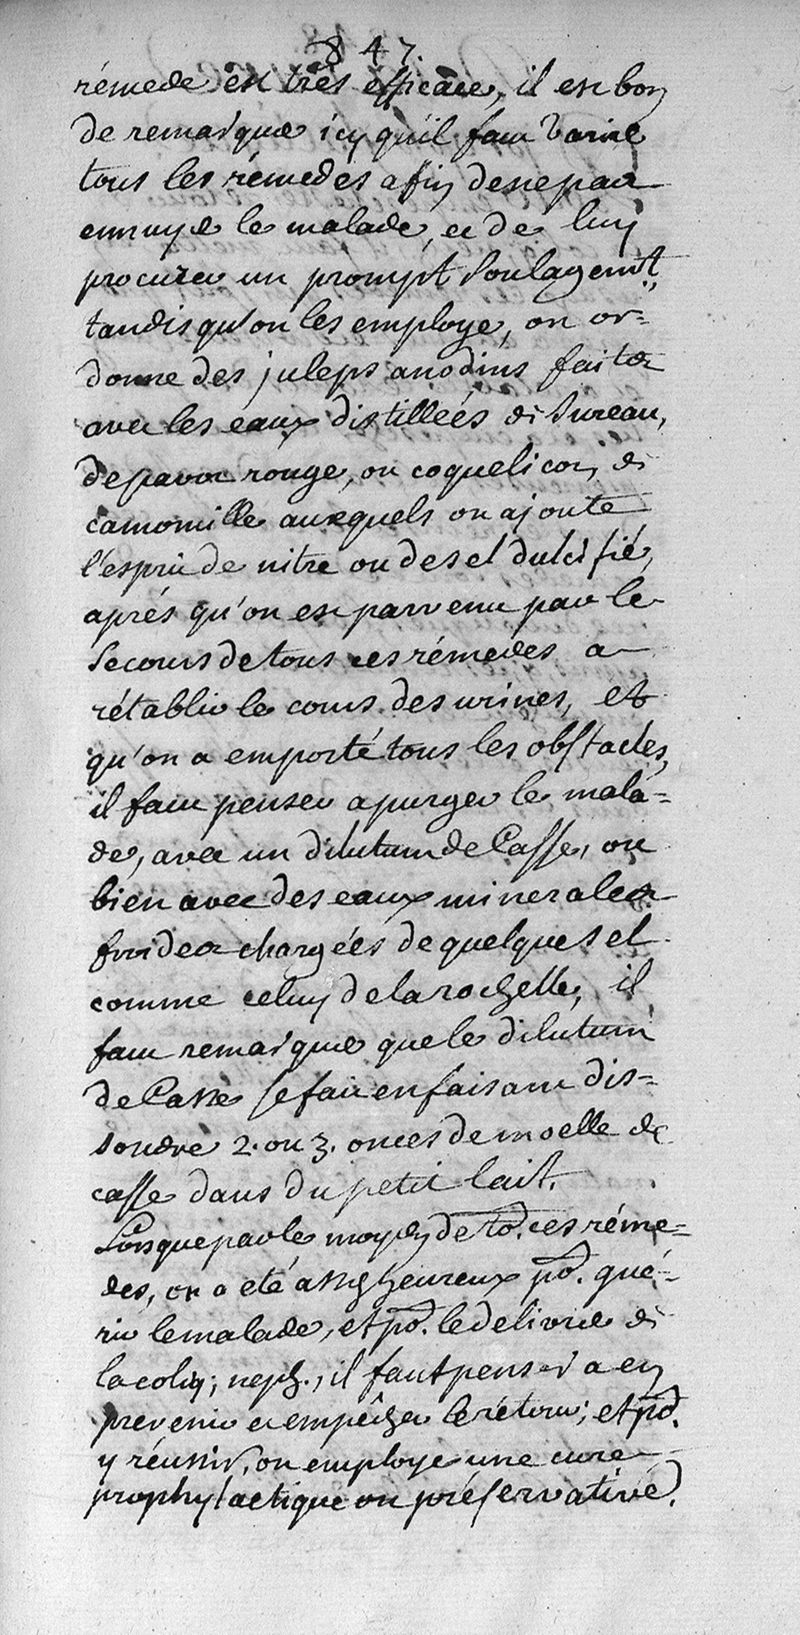 847.
rémede est très efficace, il est bon
de remarquer icy qu'il faut varier
tous les rémedes afin de ne pas
ennuyer le malade, et de luy
procurer un prompt soulagemt.
tandis qu'on les employe, on or=
donne des juleps anodins faites
avec les eaux distilleés de sureau,
de pavot rouge, ou coquelicot, de
camomille auxquels on ajoute
l'esprit de nitre ou de sel dulcifié,
aprés qu'on est parvenu par le
secours de tous ces rémedes a
rétablir le cours des urines, et
qu'on a emporté tous les obstacles,
il faut penser a purger le mala=
de, avec un dilutum de Casse, ou
bien avec des eaux minerales
froides chargées de quelque sel
comme celuy de la rochelle, il
faut remarquer que le dilutum
de Casse se fait en faisant dis=
soudre 2. ou 3. onces de moelle de
casse dans du petit lait.
Lorsque par le moyen de to. ces réme=
des, on a eté assez heureux po. gué=
rir le malade, et po. le delivrer de
la coliq; neph., il faut penser a en
prevenir et empêcher le rétour; et po.
y réussir, on employe une cure
prophylactique ou préservative.